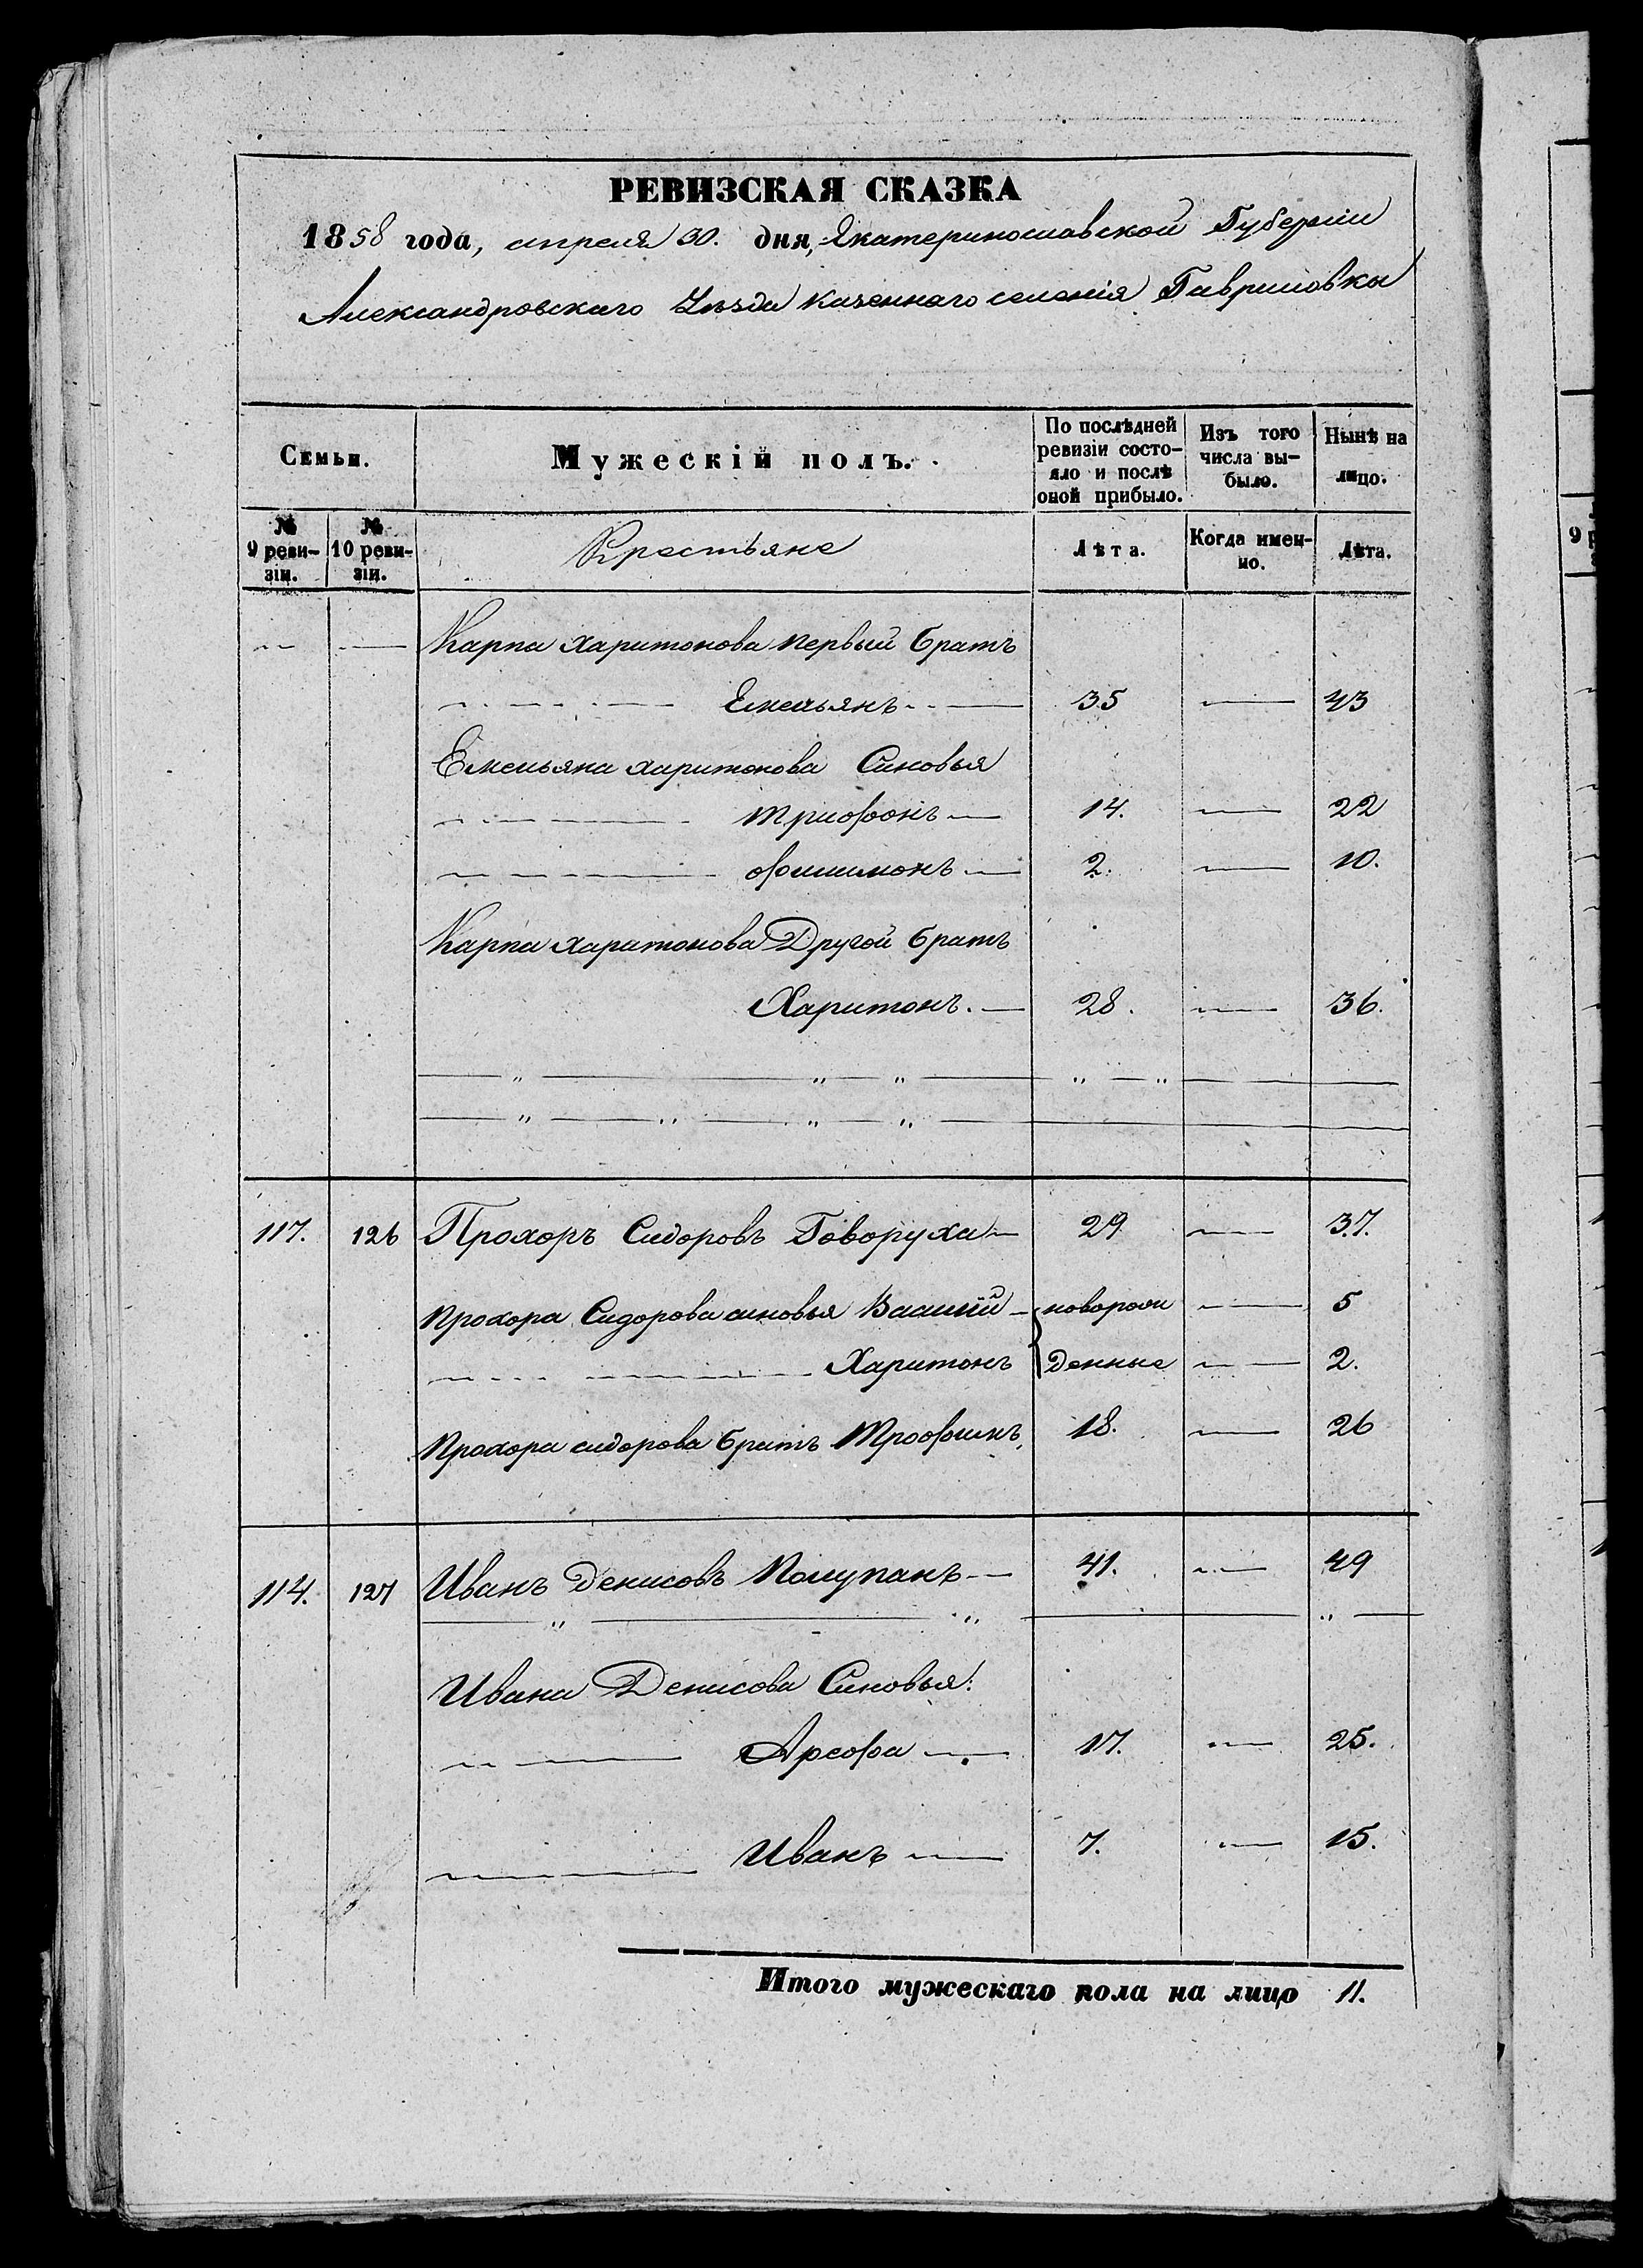 РЕВИЗСКАЯ СКАЗКА
1858 года, апреля 30. дня, Екатеринославской Губерніи
Александровскаго Уѣзда казеннаго селенія Гавриловки
Семьи. Мужескій полъ. По послѣдней ревизіи состо- яло и послѣ оной прибыло. Изъ того числа вы- было. Нынѣ на лицо.
№ 9 реви- зіи. № 10 реви- зіи. Крестьяне Лѣта. Когда имен- но. Лѣта.
Карпа Харитонова первый братъ
Емельянъ 35 43
Емельяна Харитонова Сыновья
Трифонъ 14. 22
Филимонъ 2. 10.
Карпа Харитонова Другой братъ
Харитонъ. 28. 36.
117. 126 Прохоръ Сидоровъ Говоруха 29 37.
Прохора Сидорова сыновья Василій новорож 5
Харитонъ денные 2.
Прохора Сидорова братъ Трофимъ 18. 26
114. 127 Иванъ Денисовъ Полупанъ 41. 49
Ивана Денисова Сыновья:
Арефа 17. 25.
Иванъ 7. 15.
Итого мужескаго пола на лицо 11.
9